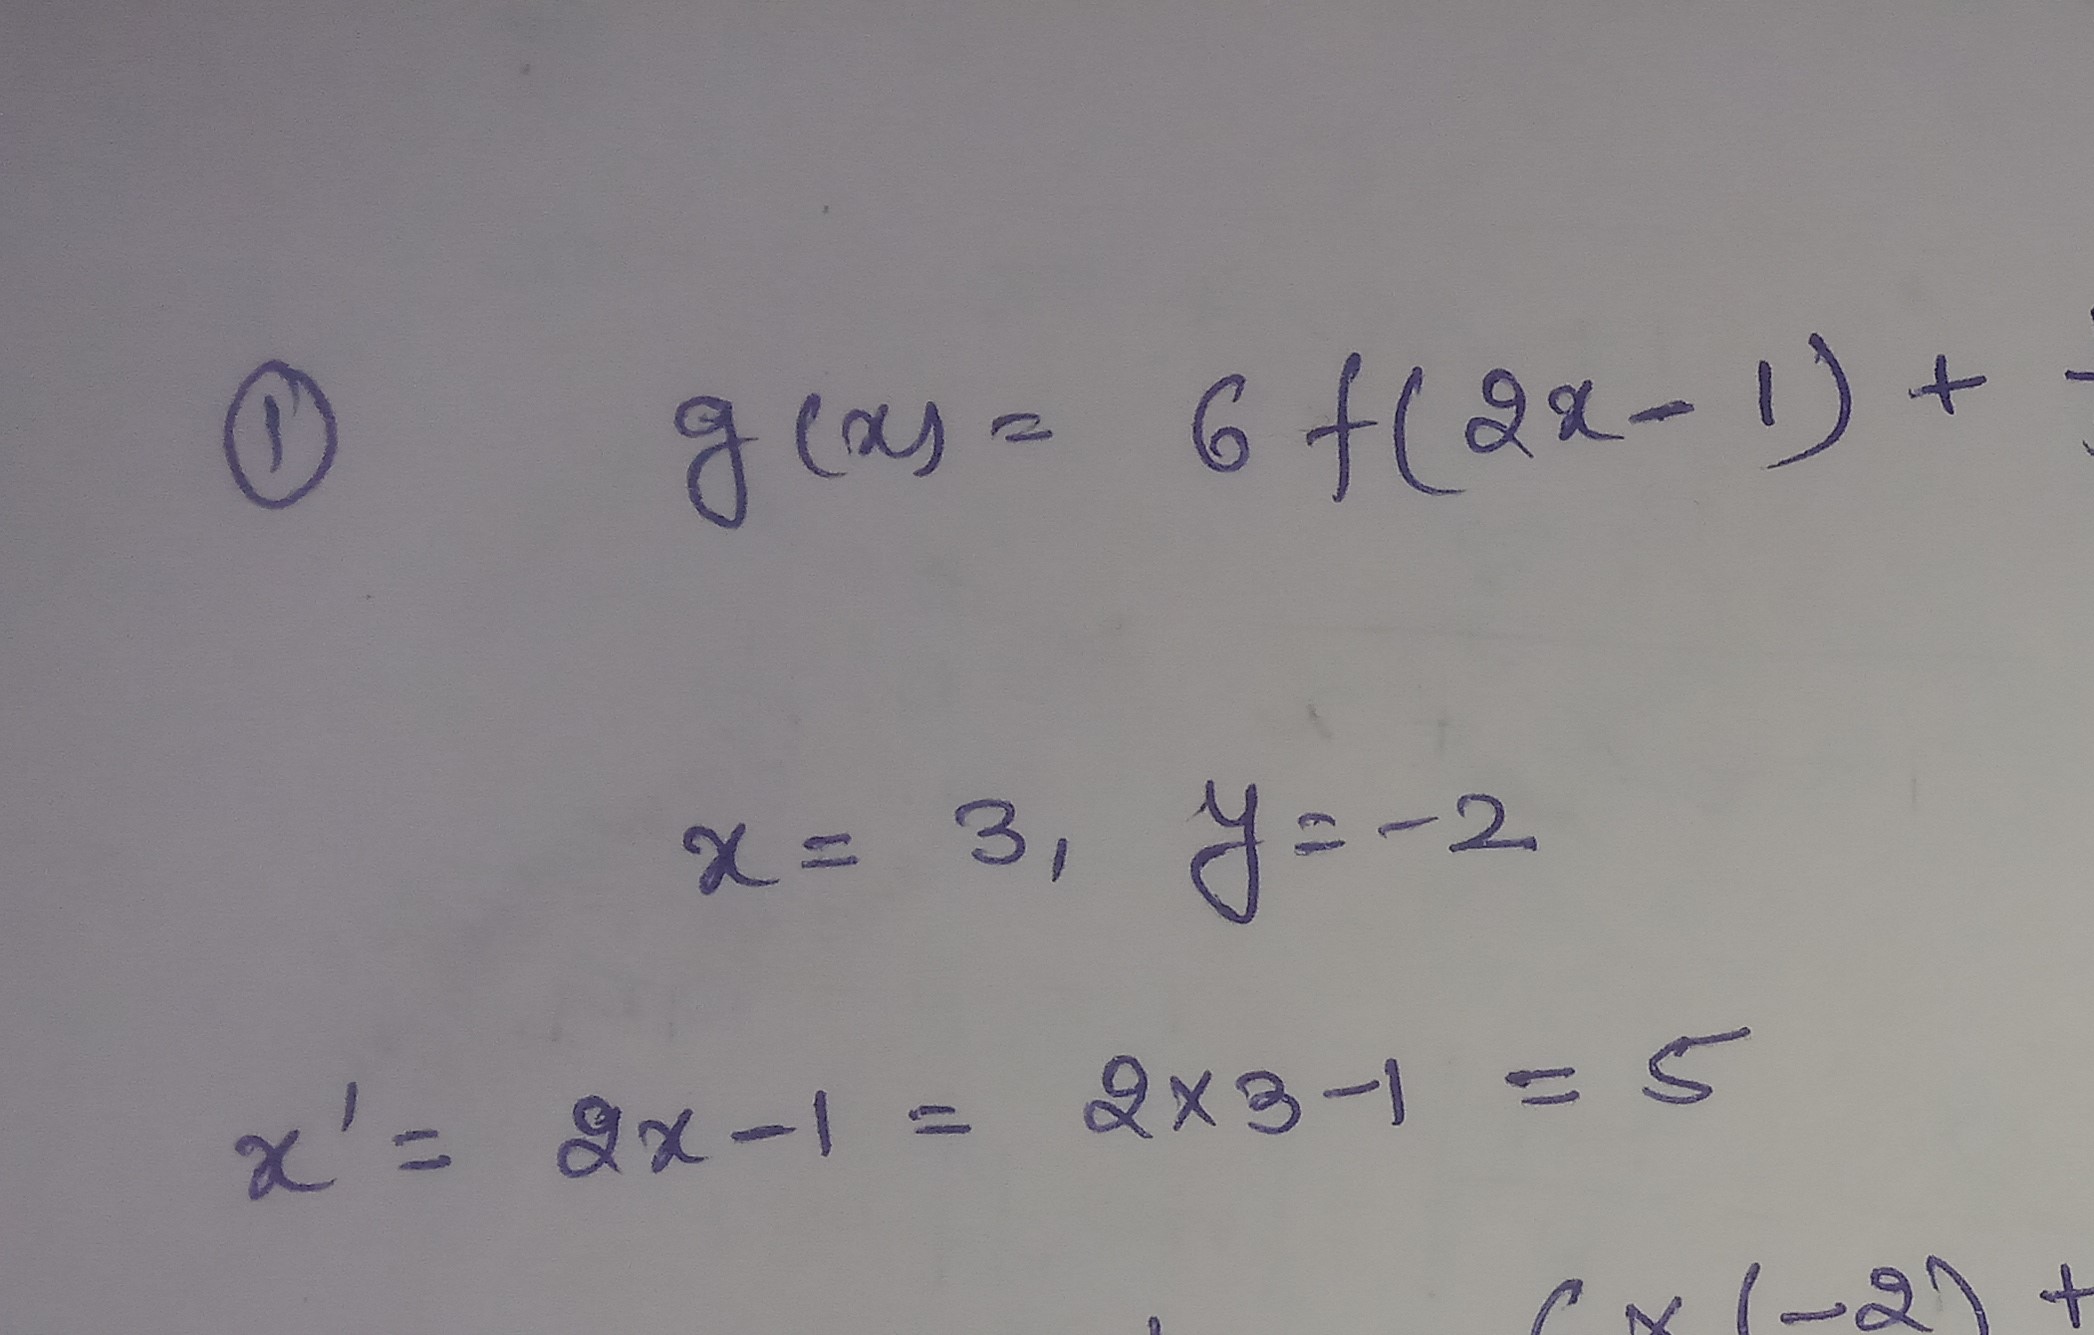 ① g(x) = 6 f(2x-1) +
x = 3, y = -2
x' = 2x-1 = 2×3-1 = 5
×(-2) +